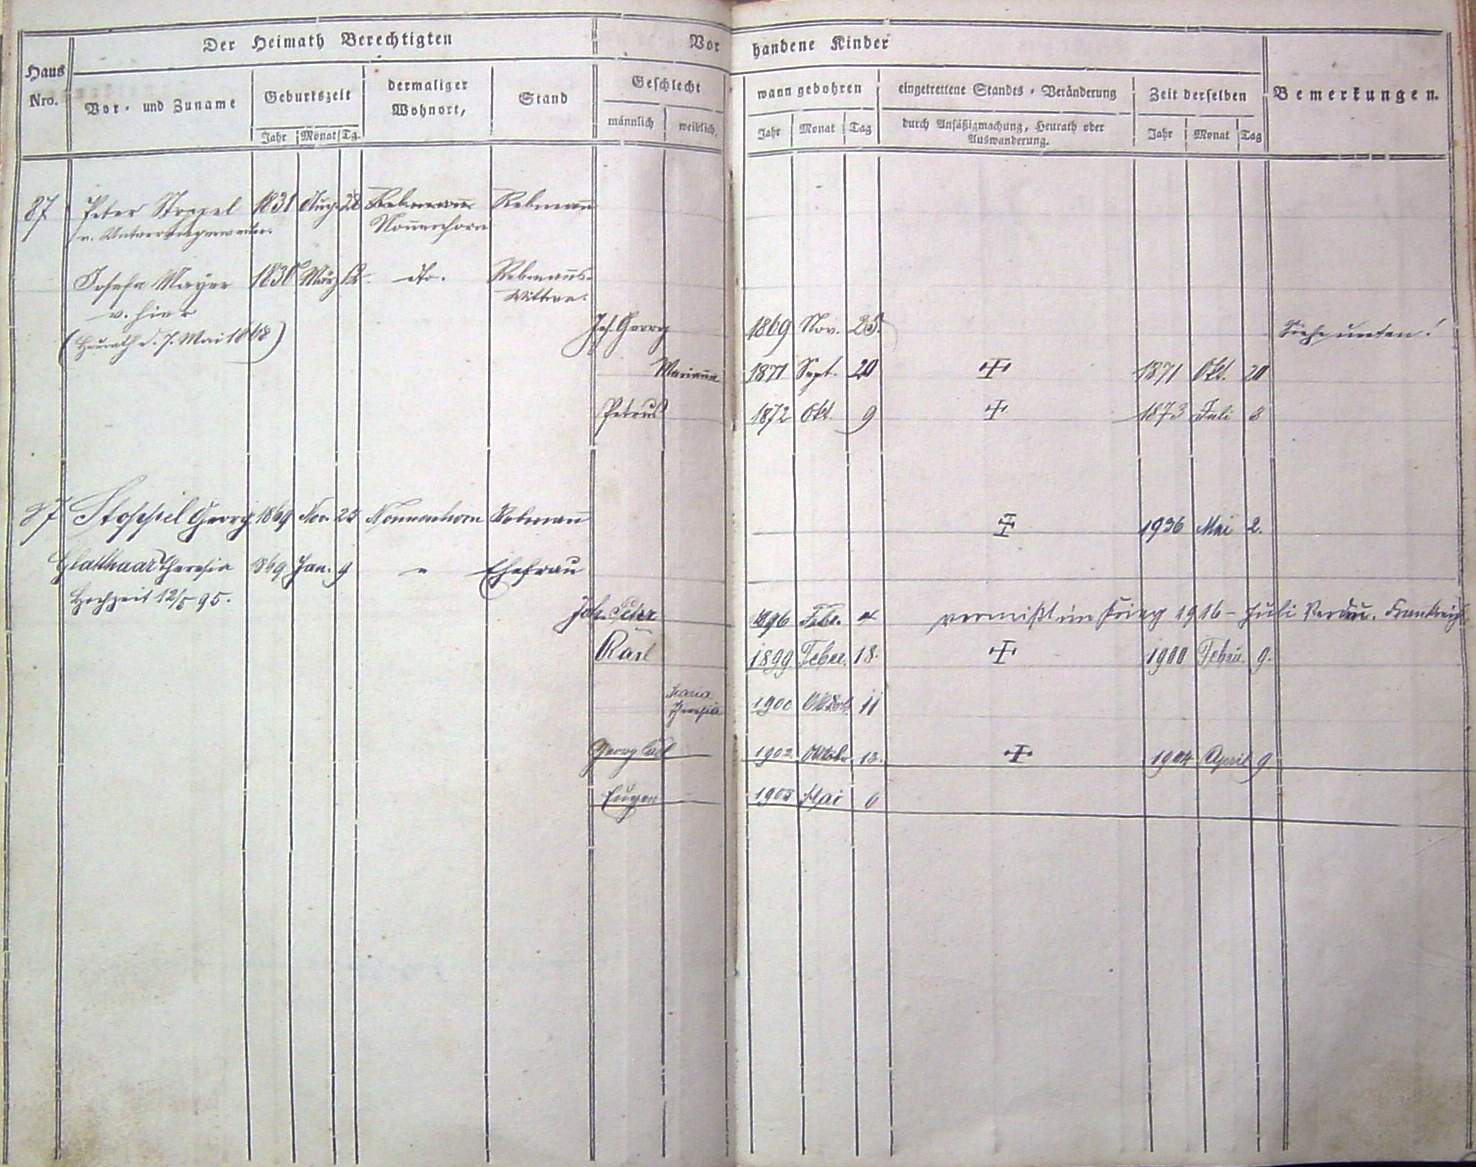 Der Heimath Berechtigten
Vorhandene Kinder
Haus Nro.
Vor- und Zuname
Geburtszeit
Jahr Monat Tg.
dermaliger Wohnort,
Stand
Geschlecht
männlich weiblich.
wann gebohren
Jahr Monat Tag
eingetrettene Standes-Veränderung
durch Ansäßigmachung, Heurath oder
Auswanderung.
Zeit derselben
Jahr Monat Tag
Bemerkungen.
87 Peter 1831 Aug. 28 Rebmann Rebmann
Nonnenhorn
Josefa Mayer 1838 März 12 dto. Rebmanns-
v. hier Wittwe.
(Heurath d. 7. Mai 1868)
Joh. Georg 1869 Nov. 25 Siehe unten!
Mariana 1871 Sept. 20 ✝ 1871 Okt. 20
Petrus 1872 Okt. 9 ✝ 1873 Juli 3
87 Georg 1869 Nov. 25 Nonnenhorn Rebmann ✝ 1936 Mai 2.
Glatthaar Theresia 1869 Jan. 9 " Ehefrau
Hochzeit 12/5 95.
Joh. Peter 1896 Febr. 4 vermißt im Krieg 1916 - Juli Verdun. Frankreich
Karl 1899 Feber. 18. ✝ 1900 Febru. 9.
Maria
Theresia 1900 Oktob. 11
Georg Carl 1902 Oktob. 13. ✝ 1904 April 9
Eugen 1905 Mai 6